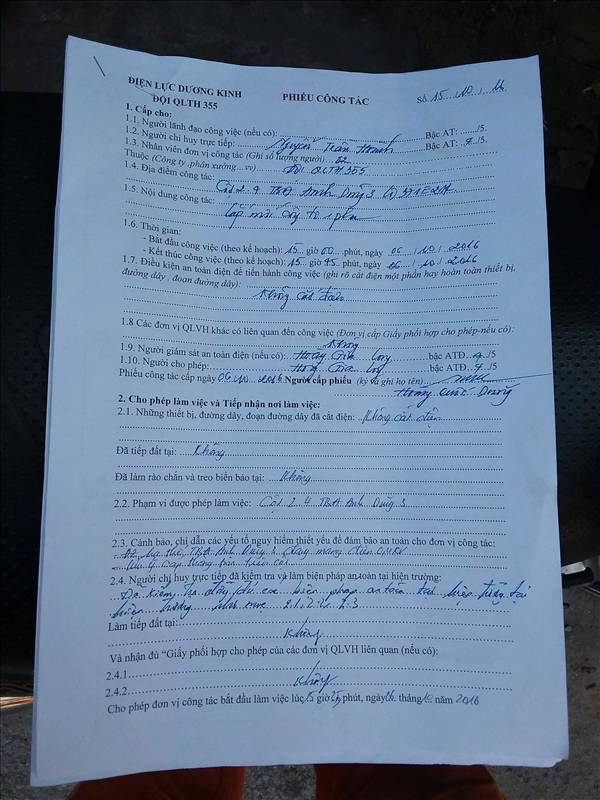 ĐIỆN LỰC DƯƠNG KINH
ĐỘI QLTH 355
PHIẾU CÔNG TÁC
Số 15 / 10 /
1. Cấp cho:
1.1. Người lãnh đạo công việc (nếu có): Bậc AT: /5.
1.2. Người chỉ huy trực tiếp: Nguyễn Trần Bậc AT: /5.
1.3. Nhân viên đơn vị công tác (Ghi số lượng người) 02
Thuộc (Công ty ,phân xưởng…vv) Đội QLTH 355
1.4. Địa điểm công tác: Cột 2.4 TBA Anh Dũng 3
1.5. Nội dung công tác:
Lắp mới công tơ 1 pha
1.6. Thời gian:
- Bắt đầu công việc (theo kế hoạch): 15 giờ 00 phút, ngày 06 / 10 / 2016
- Kết thúc công việc (theo kế hoạch): 15 giờ 45 phút, ngày 06 / 10 / 2016
1.7. Điều kiện an toàn điện để tiến hành công việc (ghi rõ cắt điện một phần hay hoàn toàn thiết bị,
đường dây , đoạn đường dây):
Không cắt điện
1.8 Các đơn vị QLVH khác có liên quan đến công việc (Đơn vị cấp Giấy phối hợp cho phép-nếu có):
Không
1.9. Người giám sát an toàn điện (nếu có): Hoàng bậc ATĐ /5
1.10. Người cho phép: bậc ATĐ /5
Phiếu công tác cấp ngày 06/10 2016 Người cấp phiếu (ký và ghi họ tên)
Hoàng Dương
2. Cho phép làm việc và Tiếp nhận nơi làm việc:
2.1. Những thiết bị, đường dây, đoạn đường dây đã cắt điện: Không cắt điện
Đã tiếp đất tại: Không
Đã làm rào chắn và treo biển báo tại: Không
2.2. Phạm vi được phép làm việc: Cột 2.4 TBA Anh Dũng 3
2.3. Cảnh báo, chỉ dẫn các yếu tố nguy hiểm thiết yếu để đảm bảo an toàn cho đơn vị công tác:
ĐZ hạ thế TBA Anh Dũng 3 đang mang điện 0,4KV
trên cột
2.4. Người chỉ huy trực tiếp đã kiểm tra và làm biện pháp an toàn tại hiện trường:
Đã kiểm tra đầy đủ các biện pháp an toàn tại
hiện trường như mục 2.1, 2.2, 2.3
Làm tiếp đất tại:
Không
Và nhận đủ “Giấy phối hợp cho phép của các đơn vị QLVH liên quan (nếu có):
2.4.1
2.4.2 Không
Cho phép đơn vị công tác bắt đầu làm việc lúc 15 giờ phút, ngày 06 tháng 10 năm 2016